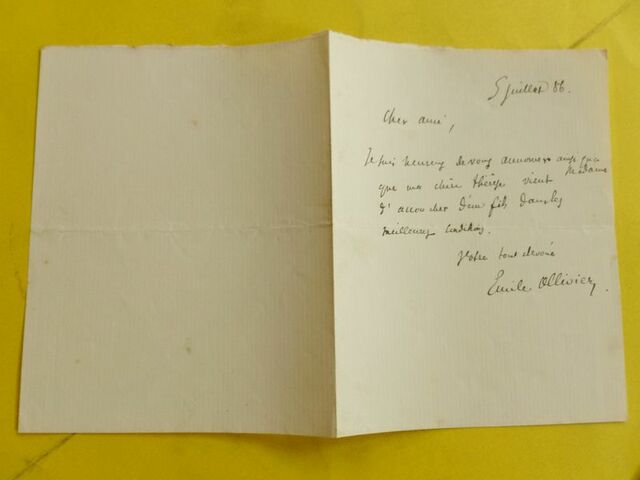 5 juillet 86.
Cher ami,
Je suis heureux de vous annoncer ainsi qu'a
Madame
que ma chère Thérèse vient
d'accoucher d'un fils dans les
meilleures conditions.
Votre tout dévoué
Emile Ollivier.